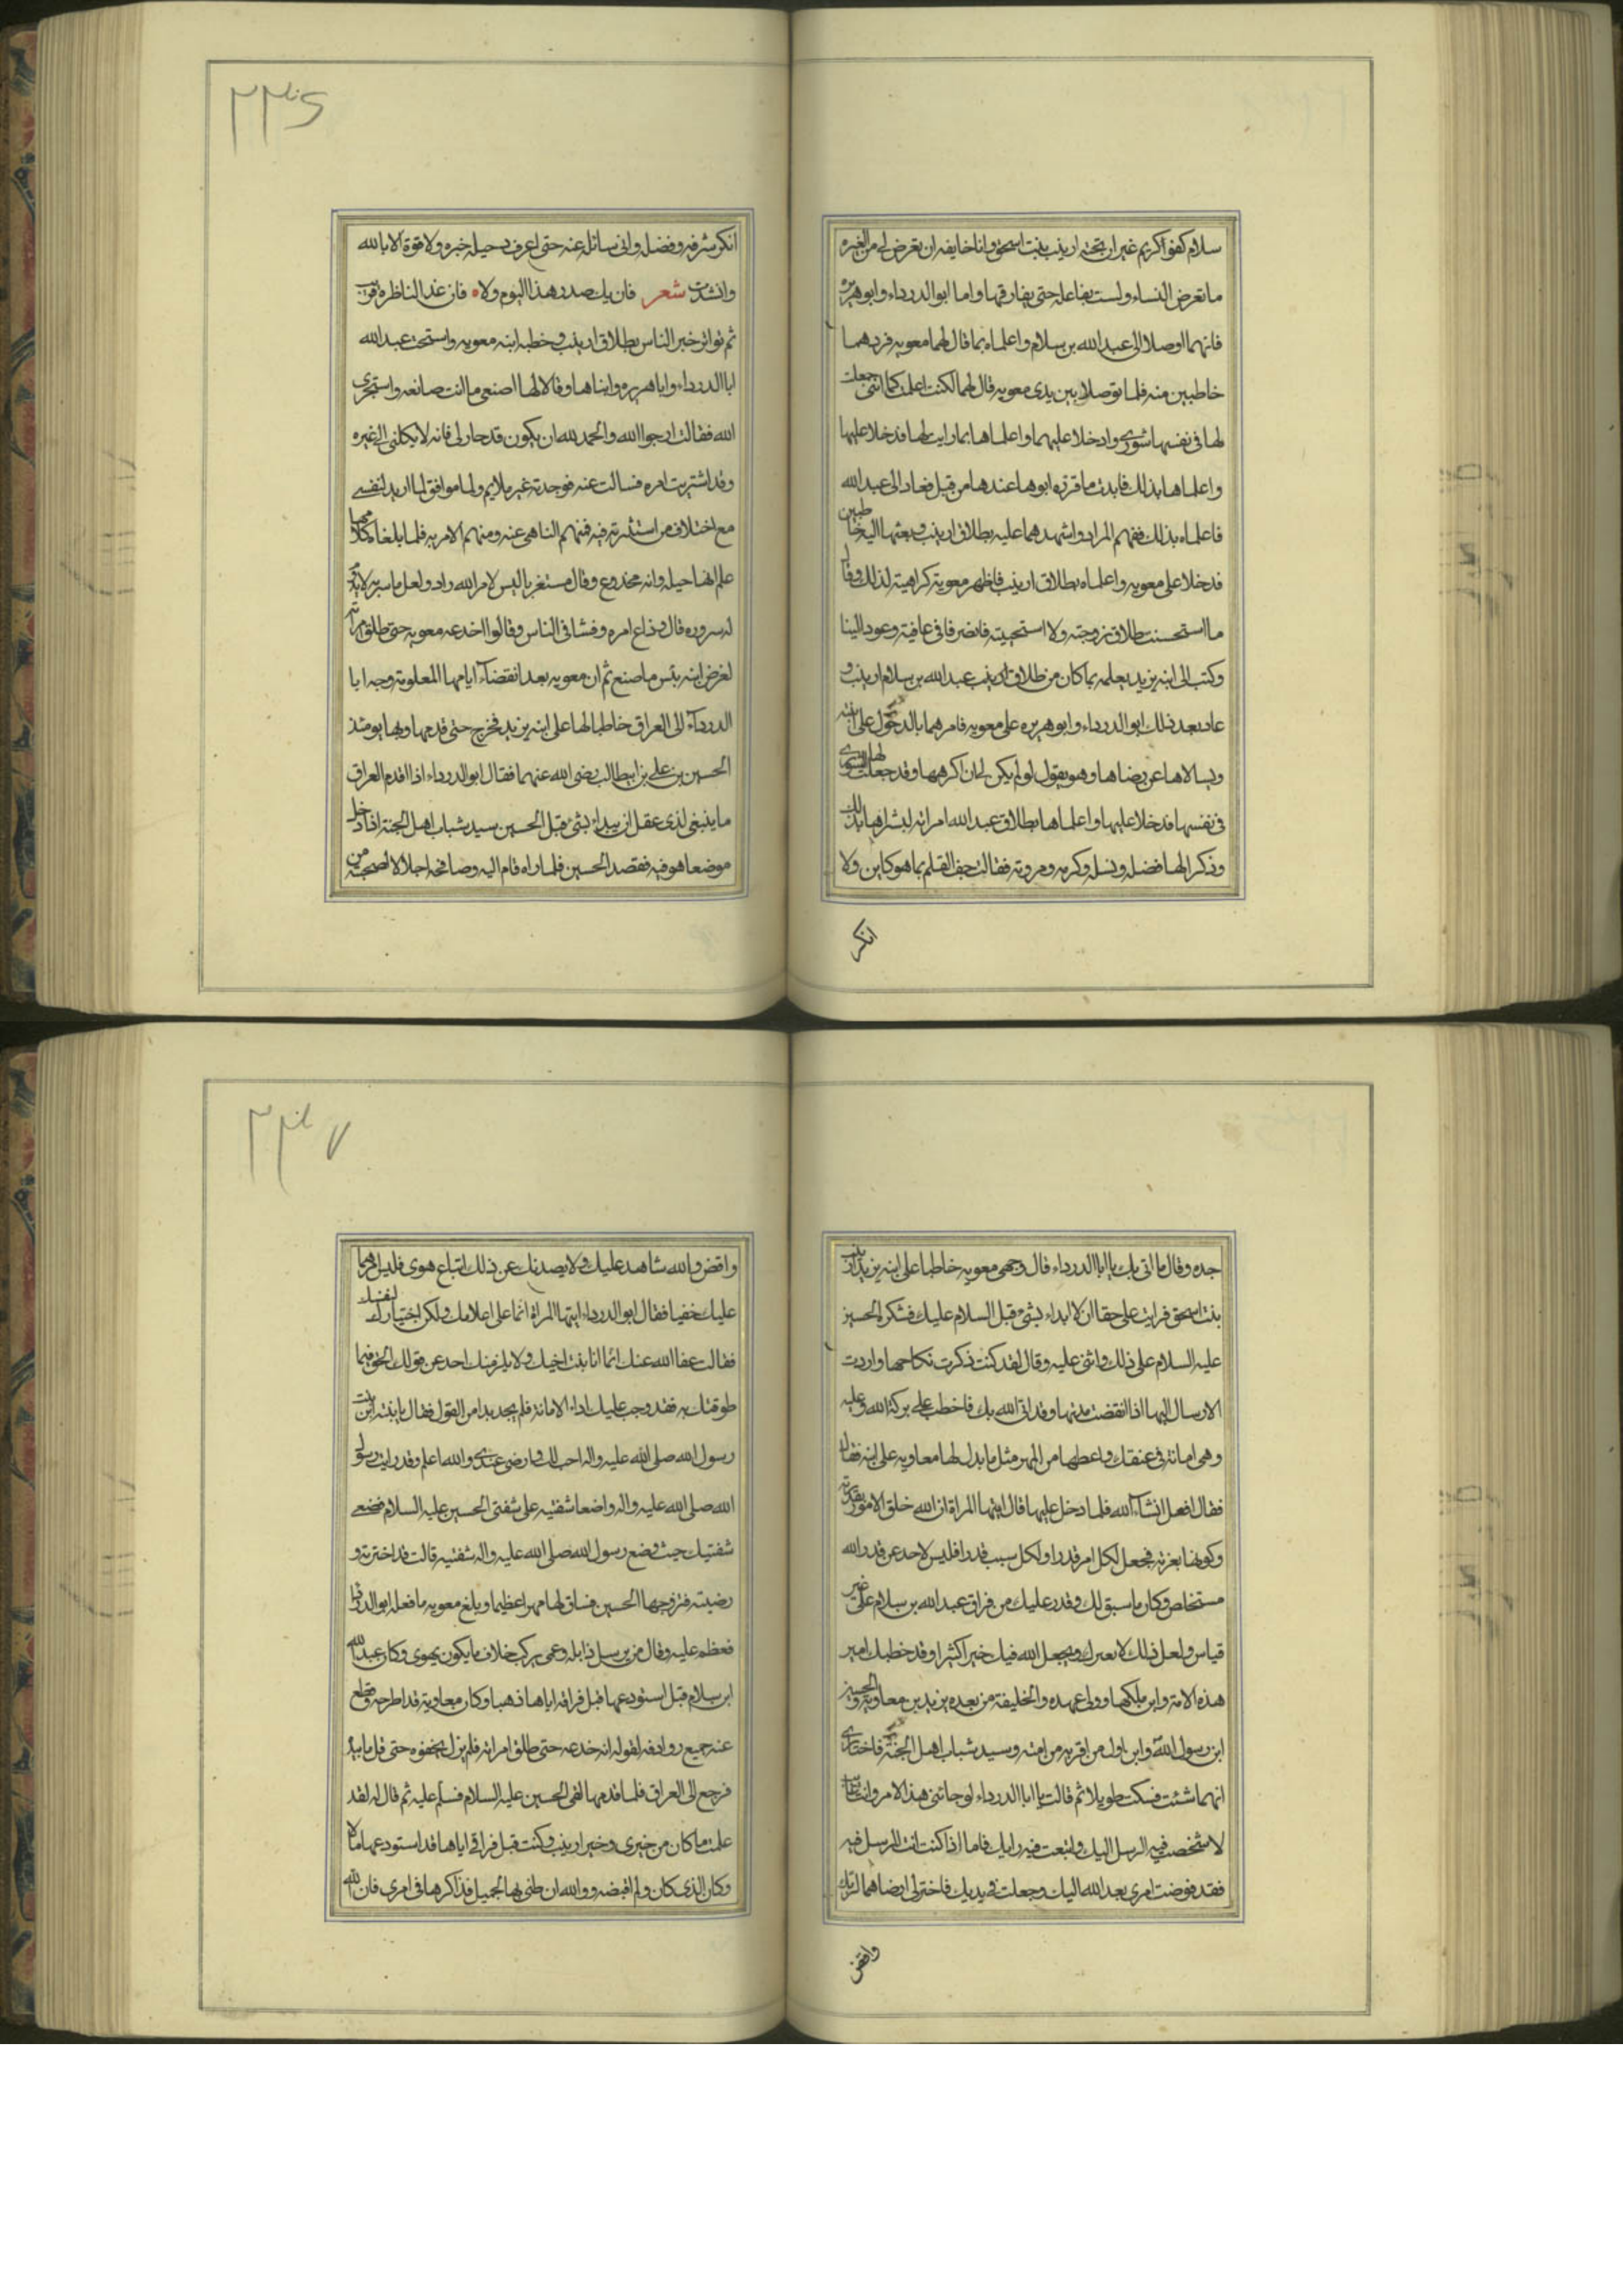 سلام كفوا كريم غير ان تحته ارينب بنت اسحق وانا خايفه ان تعرض لى من الغيره
ما تعرض النساء ولست بفاعله حتى يفارقها واما ابو الدرداء وابو هريره
فانهما اوصلا الى عبد الله بن سلام واعلماه بما قال لهما معويه فردهما
خاطبين منه فلما توصلا بين يدى معويه قال لهما لكنت اعلمتكما اننى جعلت
لها فى نفسها شورى وادخلا عليها واعلماها بما رايت لها فدخلا عليها
واعلماها بذلك فابدت ما قرره ابوها عندها من قبل فعادا الى عبد الله
فاعلماه بذلك ففهم المراد واشهدهما عليه بطلاق ارينب وبعثهما اليه خاطبين
فدخلا على معويه واعلماه بطلاق ارينب فاظهر معويه كراهيته لذلك وقال
ما استحسنت طلاق زوجته ولا استحببته فانصرفا فى عافية وعودا الينا
وكتب الى ابنه يزيد يعلمه بما كان من طلاق ارينب عبد الله بن سلام ارينب و
عاد بعد ذلك ابو الدرداء وابو هريره على معويه فامرهما بالدخول على ابنته
ويسالاها عن رضاها وهو يقول لو لم يكن لى ان اكرهها وقد جعلت لها الشورى
فى نفسها فدخلا عليها واعلماها بطلاق عبد الله امراته ليسرها بذلك
وذكرا لها فضله ونسله وكرمه ومروته فقالت جف القلم بما هو كاين ولا
انكر
٢٣٦
انكر شرفه وفضله وانى سائله عنه حتى اعرف دخيل خبره ولا قوة الا بالله
وانشدت شعر فان يك صدر هذا اليوم ولاه فان غدا لناظره قريب
ثم تواتر خبر الناس بطلاق ارينب وخطبه ابنه معويه واستحث عبد الله
ابا الدرداء وابا هريره واتياها وقالا لها اصنعى ما انت صانعه واستخيرى
الله فقالت ارجوا الله والحمد لله ان يكون قد خار لى فانه لا يكلنى الى غيره
وقد اشتريت امره فسالت عنه فوجدته غير ملايم ولا موافق لما اريد لنفسى
مع اختلاف من استشرته فيه فمنهم الناهى عنه ومنهم الامر به فلما بلغاه كلامها
علم انها حيله وانه مخدوع وقال مستغربا ليس لامر الله راد ولعل ما سر به لا يدوم
له سروره قال وذاع امره وفشا فى الناس وقالوا اخدعه معويه حتى طلق امراته
لغرض ابنه بئس ما صنع ثم ان معويه بعد انقضاء ايامها المعلومة وجه ابا
الدرداء الى العراق خاطبا لها على ابنه يزيد فخرج حتى قدمها وبها يومئذ
الحسين بن على بن ابيطالب رضى الله عنهما فقال ابو الدرداء اذا قدم العراق
ما ينبغى لذى عقل ان يبداء بشىء قبل الحسين سيد شباب اهل الجنة اذا دخل
موضعا هو فيه فقصد الحسين فلما راه قام اليه وصافحه اجلالا لصحبته من
جده وقال ما اتى بك يا ابا الدرداء قال وجهى معويه خاطبا على ابنه يزيد ارينب
بنت اسحق فرايت على حقا ان لا ابداء بشىء قبل السلام عليك فشكره الحسين
عليه السلام على ذلك واثنى عليه وقال لقد كنت ذكرت نكاحها واردت
الارسال اليها اذا انقضت مدتها وقد اتى الله بك فاخطب على بركة الله وعليه
وهى امانة فى عنقك واعطها من المهر مثل ما بدل لها معاويه على ابنه فقال
فقال افعل انشاء الله فلما دخل عليها قال ايتها المراة ان الله خلق الامور بقدرته
وكونها بعزته فجعل لكل امر قدرا ولكل سبب قدرا فليس لاحد عن قدر الله
مستخاص وكان ما سبق لك وقدر عليك من فراق عبد الله بن سلام على غير
قياس ولعل ذلك لا يعيرك ويجعل الله فيك خيرا كثيرا وقد خطبك امير
هذه الامة وابن ملكها وولى عهده والخليفة من بعده يزيد بن معاوية والحسين
ابن رسول الله وابن اول من اقر به من امته وسيد شباب اهل الجنة فاختارى
ايهما شئت فسكتت طويلا ثم قالت يا ابا الدرداء لو جائنى هذا الامر وانت غائب
لاشخصت فيه الرسل اليك واتبعت فيه رايك فاما اذا كنت انت المرسل فيه
فقد فوضت امرى بعد الله اليك وجعلت فى يديك فاختر لى ارضاهما لربك
واقض
٢٣٧
واقض والله شاهد عليك ولا يصدنك عن ذلك اتباع هوى فليس امرهما
عليك خفيا فقال ابو الدرداء ايتها المراة انما على اعلامك ولكن اختيارك لنفسك
فقالت عفا الله عنك انما انا بنت اخيك ولا يلزمنك احد عن قولك الحق فيما
طوقتك به فقد وجب عليك اداء الامانة فلم يجد بدا من القول فقال يا بنية ابن بنت
رسول الله صلى الله عليه واله احب لك وارضى عندى والله اعلم وقد رايت رسول
الله صلى الله عليه واله واضعا شفتيه على شفتى الحسين عليه السلام فضعى
شفتيك حيث وضع رسول الله صلى الله عليه واله شفتيه قالت قد اخترته و
رضيته فتزوجها الحسين فساق لها مهرا عظيما وبلغ معويه ما فعله ابو الدرداء
فعظم عليه وقال من يرسل ذا بله وعمى يركب خلاف ما يكون يهوى وكان عبد الله
ابن سلام قبل استودعها قبل فراقه اياها ذهبا وكان معاوية قد اطرحه وقطع
عنه جميع روادفه لقوله انه خدعه حتى طلق امراته فلم يزل يجفوه حتى قل ما بيده
فرجع الى العراق فلما قدمها لقى الحسين عليه السلام فسلم عليه ثم قال له لقد
علمت ما كان من خبرى وخبر ارينب وكنت قبل فراقى اياها قد استودعتها مالا
وكان الذى كان ولم اقبضه ووالله ان ظنى بها لجميل فذاكرها فى امرى فان الله